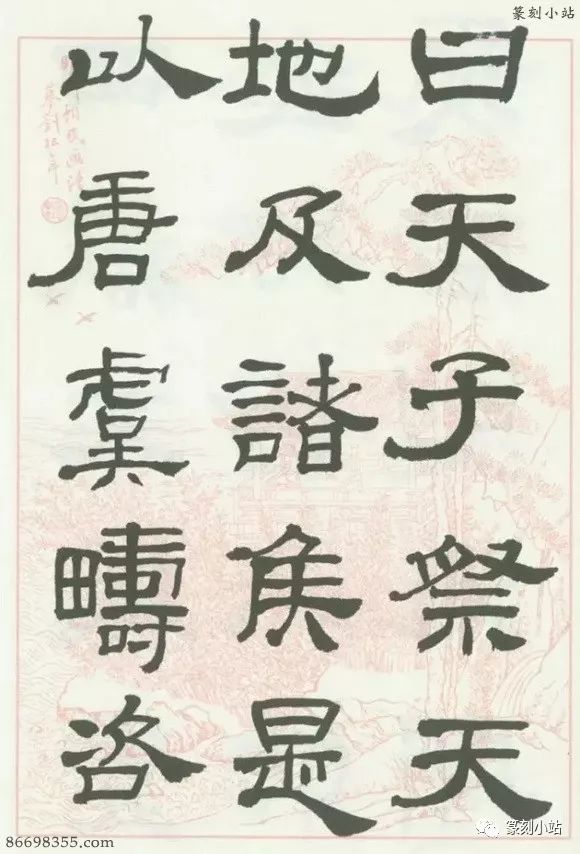 篆刻小站
曰天子祭天
地及諸侯是
以唐虞疇咨
86698355.com
篆刻小站